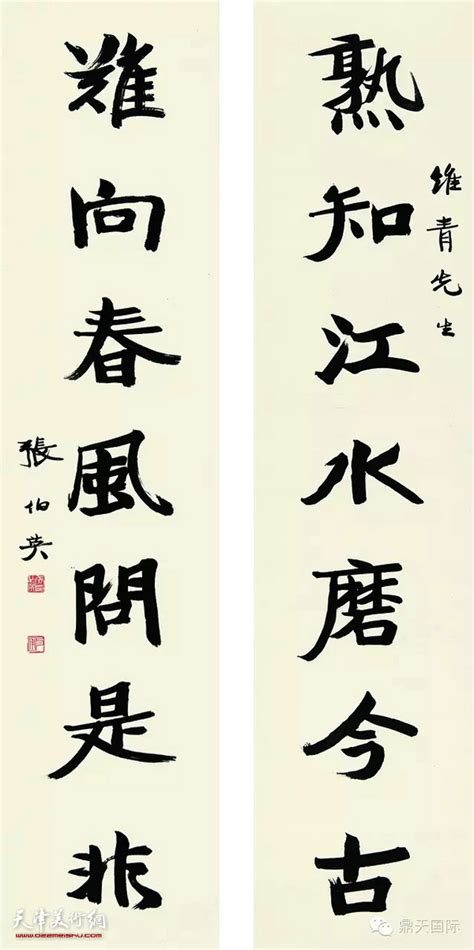 維青先生
熟知江水磨今古
難向春風問是非
張伯英
天津美術網
www.022meishu.com
鼎天国际